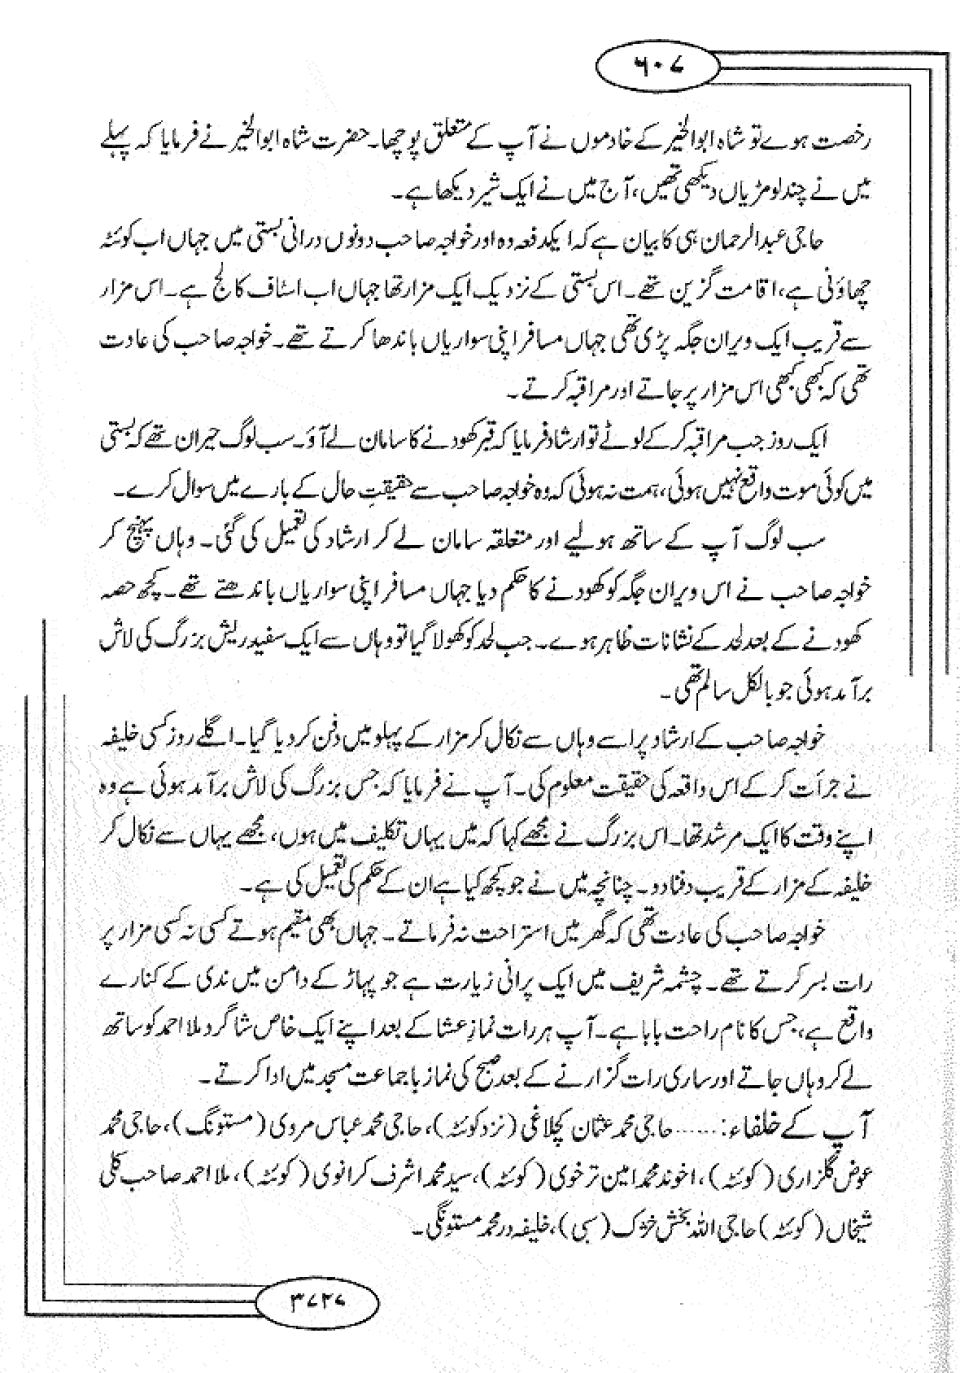 ۶۰۷
رخصت ہوے تو شاہ ابوالخیر کے خادموں نے آپ کے متعلق پوچھا۔ حضرت شاہ ابوالخیر نے فرمایا کہ پہلے
میں نے چند لومڑیاں دیکھی تھیں، آج میں نے ایک شیر دیکھا ہے۔
حاجی عبدالرحمان ہی کا بیان ہے کہ ایکدفعہ وہ اور خواجہ صاحب دونوں درانی بستی میں جہاں اب کوئٹہ
چھاؤنی ہے، اقامت گزین تھے۔ اس بستی کے نزدیک ایک مزار تھا جہاں اب اسٹاف کالج ہے۔ اس مزار
سے قریب ایک ویران جگہ پڑی تھی جہاں مسافر اپنی سواریاں باندھا کرتے تھے۔ خواجہ صاحب کی عادت
تھی کہ کبھی کبھی اس مزار پر جاتے اور مراقبہ کرتے۔
ایک روز جب مراقبہ کر کے لوٹے تو ارشاد فرمایا کہ قبر کھودنے کا سامان لے آؤ۔ سب لوگ حیران تھے کہ بستی
میں کوئی موت واقع نہیں ہوئی، ہمت نہ ہوئی کہ وہ خواجہ صاحب سے حقیقتِ حال کے بارے میں سوال کرے۔
سب لوگ آپ کے ساتھ ہولیے اور متعلقہ سامان لے کر ارشاد کی تعمیل کی گئی۔ وہاں پہنچ کر
خواجہ صاحب نے اس ویران جگہ کو کھودنے کا حکم دیا جہاں مسافر اپنی سواریاں باندھتے تھے۔ کچھ حصہ
کھودنے کے بعد لحد کے نشانات ظاہر ہوے۔ جب لحد کو کھولا گیا تو وہاں سے ایک سفید ریش بزرگ کی لاش
برآمد ہوئی جو بالکل سالم تھی۔
خواجہ صاحب کے ارشاد پر اسے وہاں سے نکال کر مزار کے پہلو میں دفن کر دیا گیا۔ اگلے روز کسی خلیفہ
نے جرأت کر کے اس واقعہ کی حقیقت معلوم کی۔ آپ نے فرمایا کہ جس بزرگ کی لاش برآمد ہوئی ہے وہ
اپنے وقت کا ایک مرشد تھا۔ اس بزرگ نے مجھے کہا کہ میں یہاں تکلیف میں ہوں، مجھے یہاں سے نکال کر
خلیفہ کے مزار کے قریب دفنا دو۔ چنانچہ میں نے جو کچھ کیا ہے ان کے حکم کی تعمیل کی ہے۔
خواجہ صاحب کی عادت تھی کہ گھر میں استراحت نہ فرماتے۔ جہاں بھی مقیم ہوتے کسی نہ کسی مزار پر
رات بسر کرتے تھے۔ چشمہ شریف میں ایک پرانی زیارت ہے جو پہاڑ کے دامن میں ندی کے کنارے
واقع ہے، جس کا نام راحت بابا ہے۔ آپ ہر رات نمازِ عشا کے بعد اپنے ایک خاص شاگرد ملا احمد کو ساتھ
لے کر وہاں جاتے اور ساری رات گزارنے کے بعد صبح کی نماز باجماعت مسجد میں ادا کرتے۔
آپ کے خلفاء: ...... حاجی محمد عثمان کچلاغی (نزد کوئٹہ)، حاجی محمد عباس مروی (مستونگ)، حاجی محمد
عوض گلزاری (کوئٹہ)، اخوند محمد امین ترخوی (کوئٹہ)، سید محمد اشرف کرانوی (کوئٹہ)، ملا احمد صاحب کلی
شیخاں (کوئٹہ) حاجی اللہ بخش خڑک (سبی)، خلیفہ در محمد مستونگی۔
۳۷۲۷